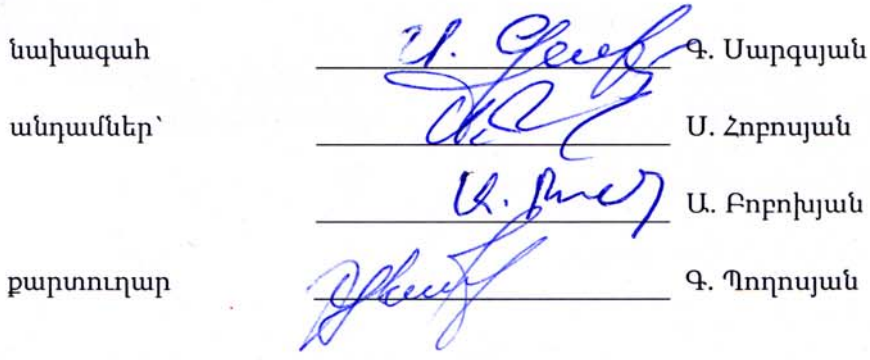 նախագահ Գ. Սարգսյան
անդամներ՝ Ս. Հոբոսյան
Ա. Բոբոխյան
քարտուղար Գ. Պողոսյան